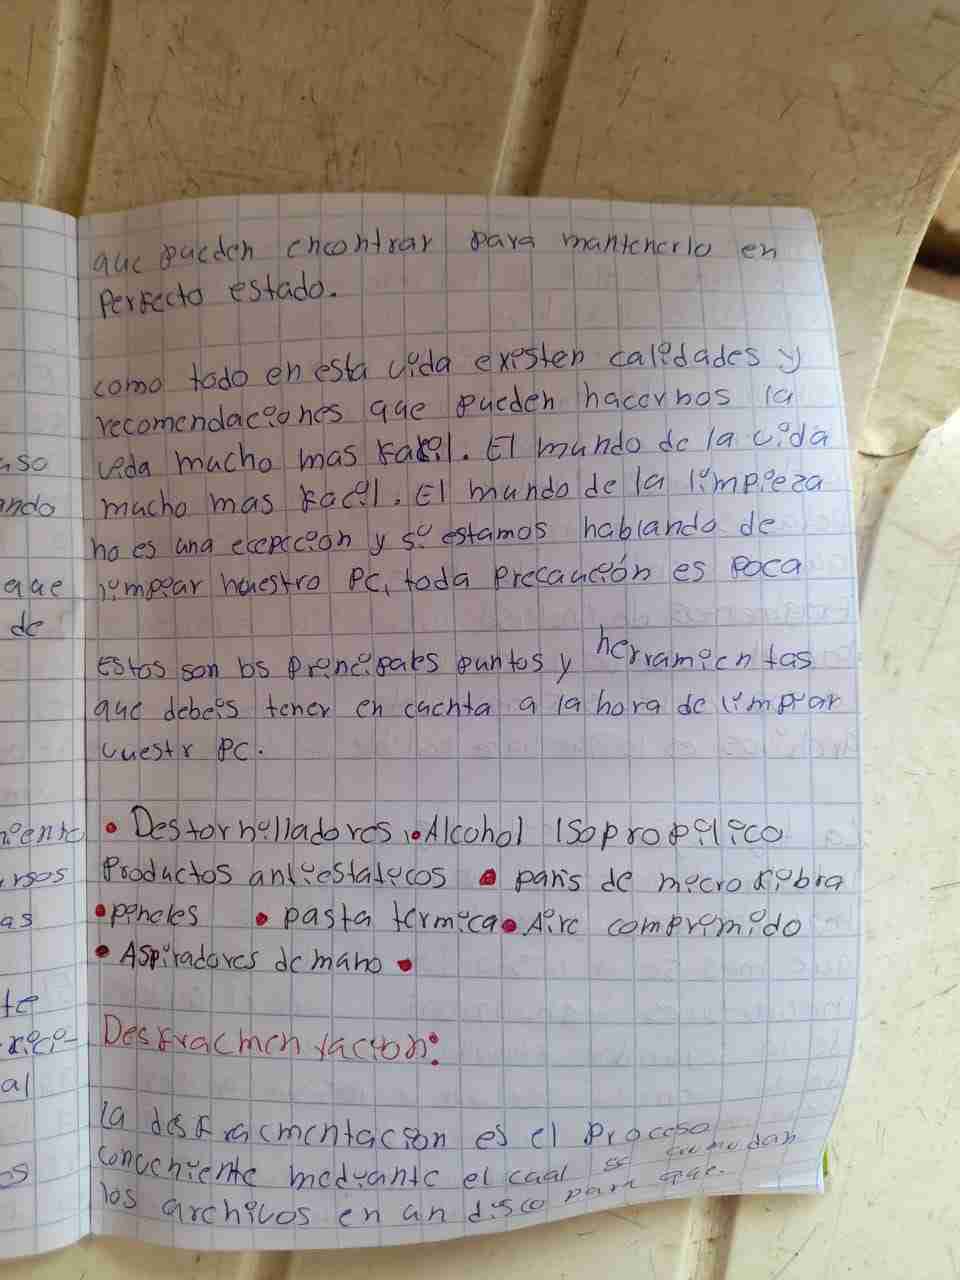 que pueden encontrar para mantenerlo en
Perfecto estado.
como todo en esta vida existen calidades y
recomendaciones que pueden hacernos la
vida mucho mas facil. El mundo de la vida
mucho mas facil. El mundo de la limpieza
no es una ecepccion y si estamos hablando de
limpiar nuestro PC, toda Precaución es poca
Estos son los principales puntos y herramientas
que debeis tener en cuenta a la hora de limpiar
vuestr PC.
• Destornilladores, • Alcohol Isopropilico
Productos antiestaticos • paris de micro fibra
• pinceles • pasta termica • Aire comprimido
• Aspiradores de mano •
Desfracmentacion:
la desfracmentación es el Proceso
conveniente mediante el cual se acomodan
los archivos en un disco para que.
uso
ando
que
de
miento
ursos
as
te
fici-
al
os